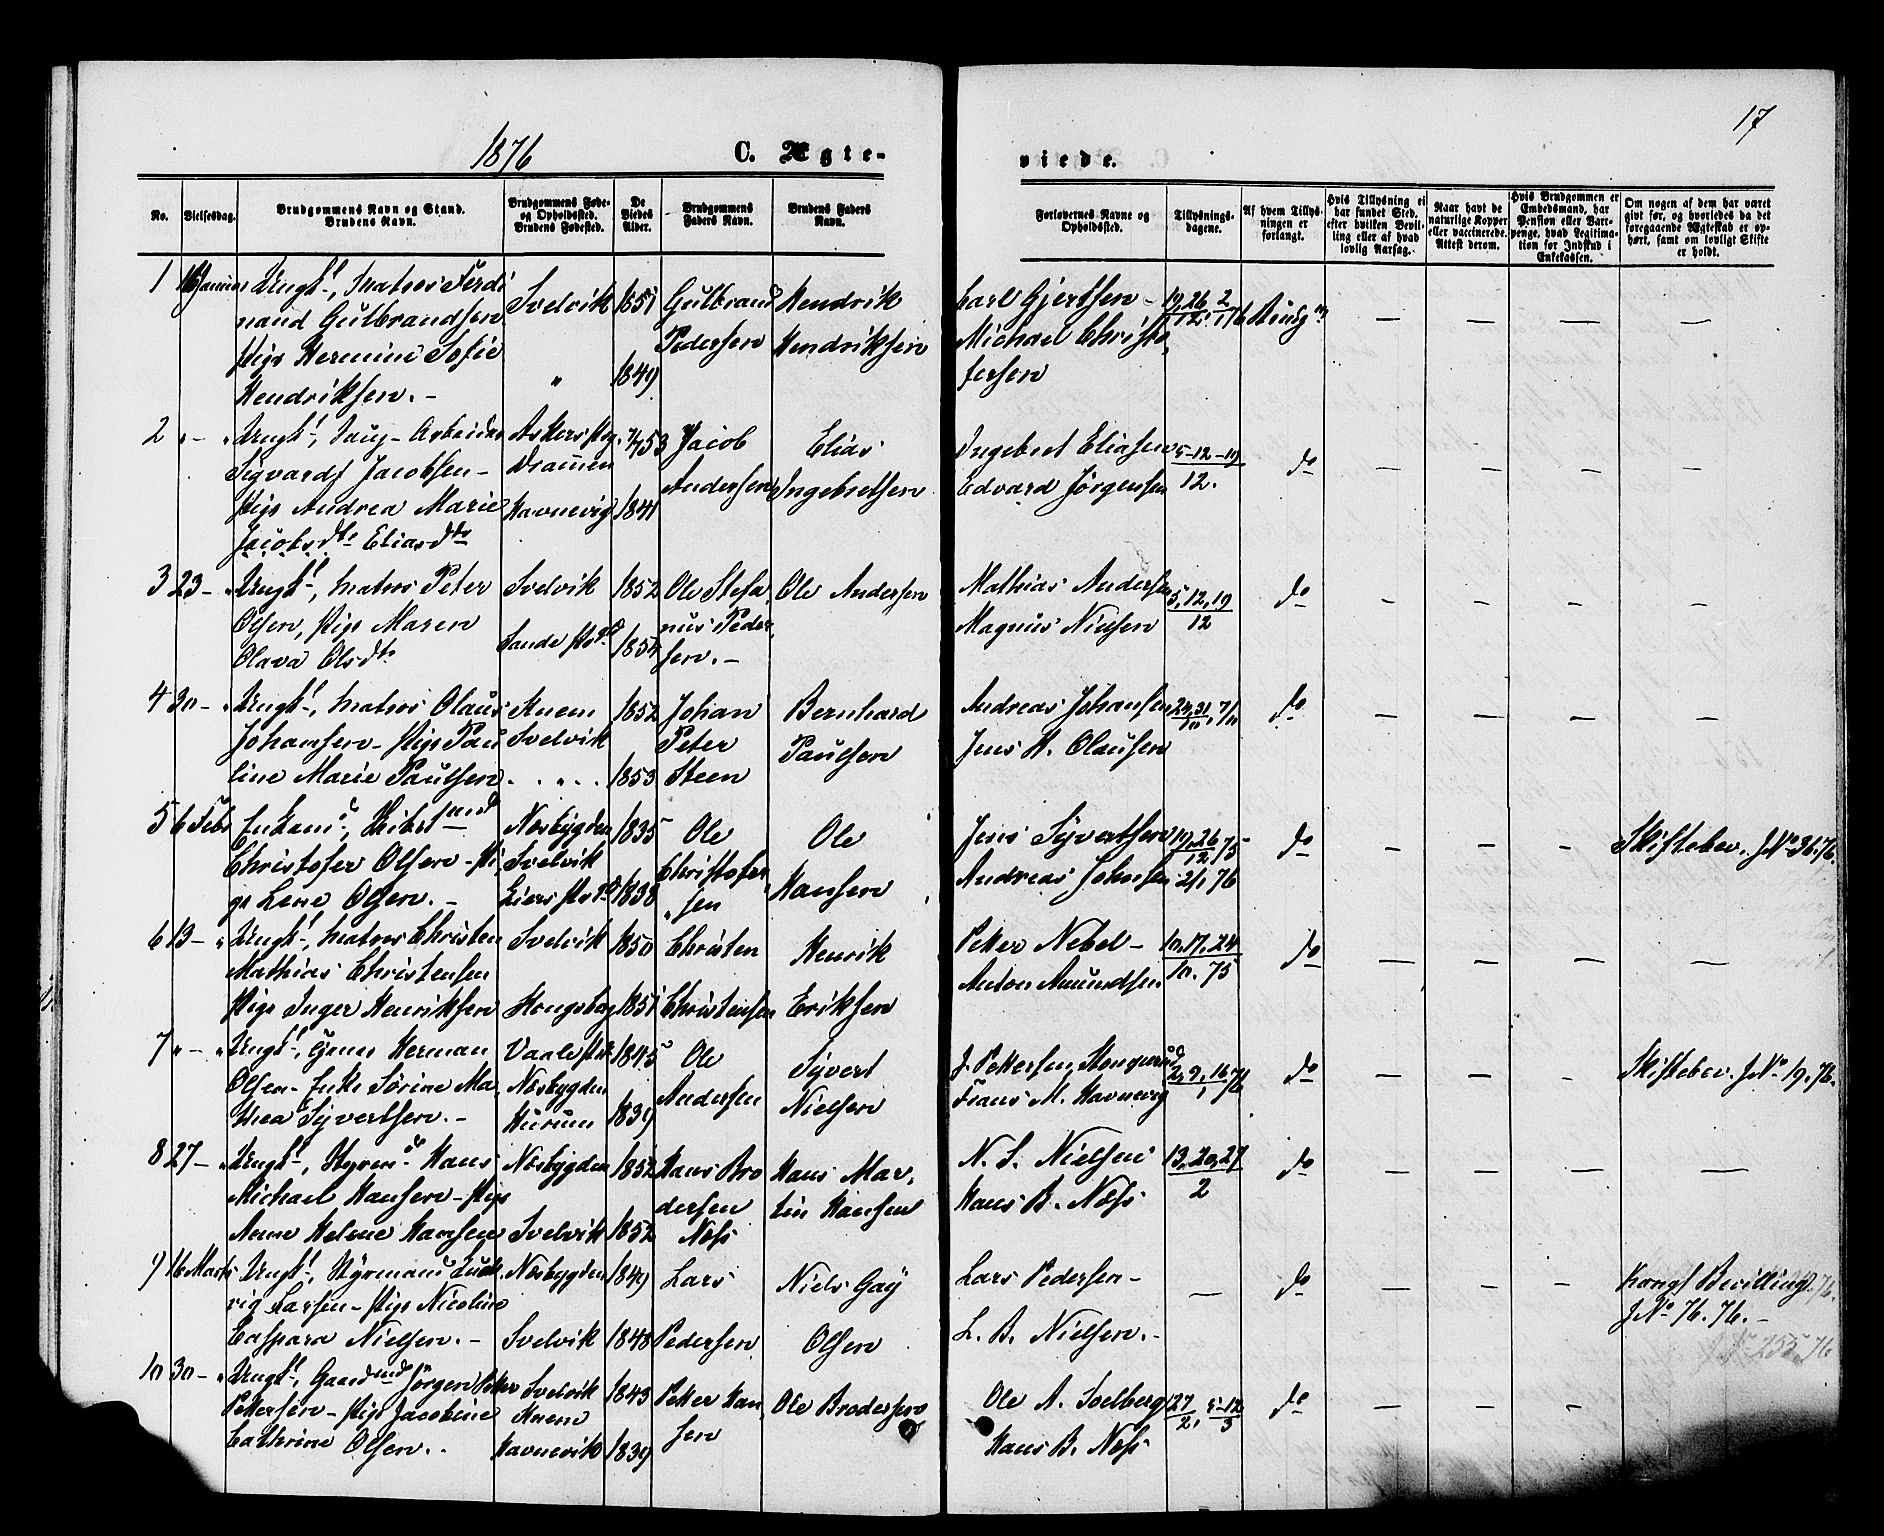 17
1876
C. Ægte-
viede.
No.
Vielsesdag.
Brudgommens Navn og Stand.
Brudens Navn.
Brudgommens Føde-
og Opholdssted.
Brudens Fødested.
De
Viedes
Alder.
Brudgommens
Faders Navn.
Brudens Faders
Navn.
Forlovernes Navne og
Opholdssted.
Tillysnings-
dagene.
Af hvem Tillys-
ningen er
forlangt.
Hvis Tillysning ei
har fundet Sted,
efter hvilken Bevil-
ling eller af hvad
lovlig Aarsag.
Naar havt de
naturlige Kopper
eller vaccinerede.
Attest derom.
Hvis Brudgommen er
Embedsmand, har
Pension eller Vart-
penge, hvad Legitima-
tion for Indskud i
Enkekassen.
Om nogen af dem har været
gift før, og hvorledes da det
foregaaende Ægteskab er op-
hørt, samt om lovligt Skifte
er holdt.
1 16 Januar Ungk., Matros Ferdi
nand Gulbrandsen
Pige Hermine Sofie
Hendriksen. -
Svelvik 1851
" 1849
Gulbrand
Pedersen
Hendrik
Hendriksen
Carl Gjertsen -
Michael Christo,
fersen
19, 26 2
12 1 76
Brudg.
2 " - " Ungk., Saug-Arbeider
Sigvardt Jacobsen -
Pige Andrea Marie
Jacobsdtr Eliasdtr
Askers Præg.
Drammen
Havnevig
1853
1841
Jacob
Andersen
Elias
Ingebretsen
Ingebret Eliasen
Edvard Jörgensen
5-12-19
12.
do
3 23 - " Ungk., Matros Peter
Olsen, Pige Maren
Olava Olsdtr
Svelvik 1852
Sande Præg. 1854
Ole Stefa,
nus Peder
sen. -
Ole Andersen
Mathias Andersen
Magnus Nielsen
5, 12, 19
12
do
4 30 - " Ungk., Matros Olaus
Johansen - Pige Pau
line Marie Paulsen
Knem
Svelvik
. . " . .
1852
1853
Johan
Peter
Steen
Bernhard
Paulsen
Andreas Johansen
Jens H. Olausen
24, 31, 7/11
10
do
5 6 Febr
Christofer Olsen - Pi,
ge Lene Olsen. -
Næsbygden
Svelvik
Liers Præg.
1835
1838
Ole
Christofer
" sen
Ole
Hansen
Jens Syvertsen
Andreas Johnsen
19, 26 75
12
2/1 76
do
Skiftebev. J.No 36. 76.
6 13 - " Ungk., Matros Christen
Mathias Christensen
Pige Inger Henriksen
Svelvik
Kongsberg
1850
1851
Christen
Christensen
Henrik
Eriksen
Petter Nebel -
Anton Amundsen
10, 17, 24
10. 75
do
7 " - " Ungk., Herman
Olsen - Enke Sörine Ma,
thea Syvertsen. -
Vaale Præg.
Næsbygden
Hurum
1845
1839
Ole
Andersen
Syvert
Nielsen
J. Pettersen,
Frans M. Havnevig
2, 9, 16 76
1
do
Skiftebev. J.No 19. 76.
8 27 - " Ungk., Styrm. Hans
Michael Hansen - Pige
Anne Helene Hansen
Næsbygden
Svelvik
1852
1852
Hans Bro
dersen
Næss
Hans Mar,
tin Hansen
N. S. Nielsen
Hans B. Næss
13, 20, 27
2
do
9 16 Marts Ungk., Styrmand Lud
vig Larsen - Pige Nicoline
Caspara Nielsen. -
Næsbygden
Svelvik
1849
1848
Lars
Pedersen
Niels Gay
Olsen
Lars Pedersen -
L. B. Nielsen. -
do
Kongl Bevilling
J.No 76. 76. -
10 30 - " Ungk., Gaardmd Jörgen Petter
Pettersen - Pige Jacobine
Cathrine Olsen. .
Svelvik
Knem
Havnevik
1843
1839
Petter Han,
sen
Ole Brodersen
Ole A. Solberg
Hans B. Næss
27 5-12
2, 3
do
J.No 255. 76